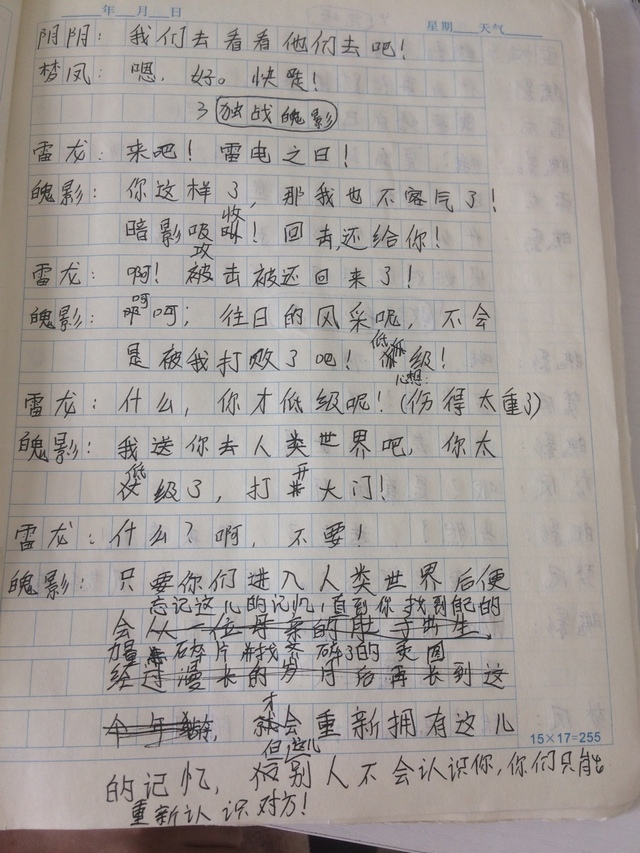 年 月 日
星期 天气
阴阴：我们去看看他们去吧！
梦凤：嗯，好。快走！
3 独战魄影
雷龙：来吧！雷电之日！
魄影：你这样了，那我也不客气了！
暗影吸收！回击，还给你！
雷龙：啊！攻击被还回来了！
魄影：呵呵；往日的风采呢，不会
是被我打败了吧！低级！
雷龙：什么，你才低级呢！（心想：伤得太重了）
魄影：我送你去人类世界吧，你太
低级了，打开大门！
雷龙：什么？啊，不要！
魄影：只要你们进入人类世界后便
会忘记这儿的记忆，直到你找到自己的
力量碎片并找齐碎了的灵圆
才会重新拥有这儿
的记忆，但这儿别人不会认识你，你们只能
重新认识对方！
15×17=255